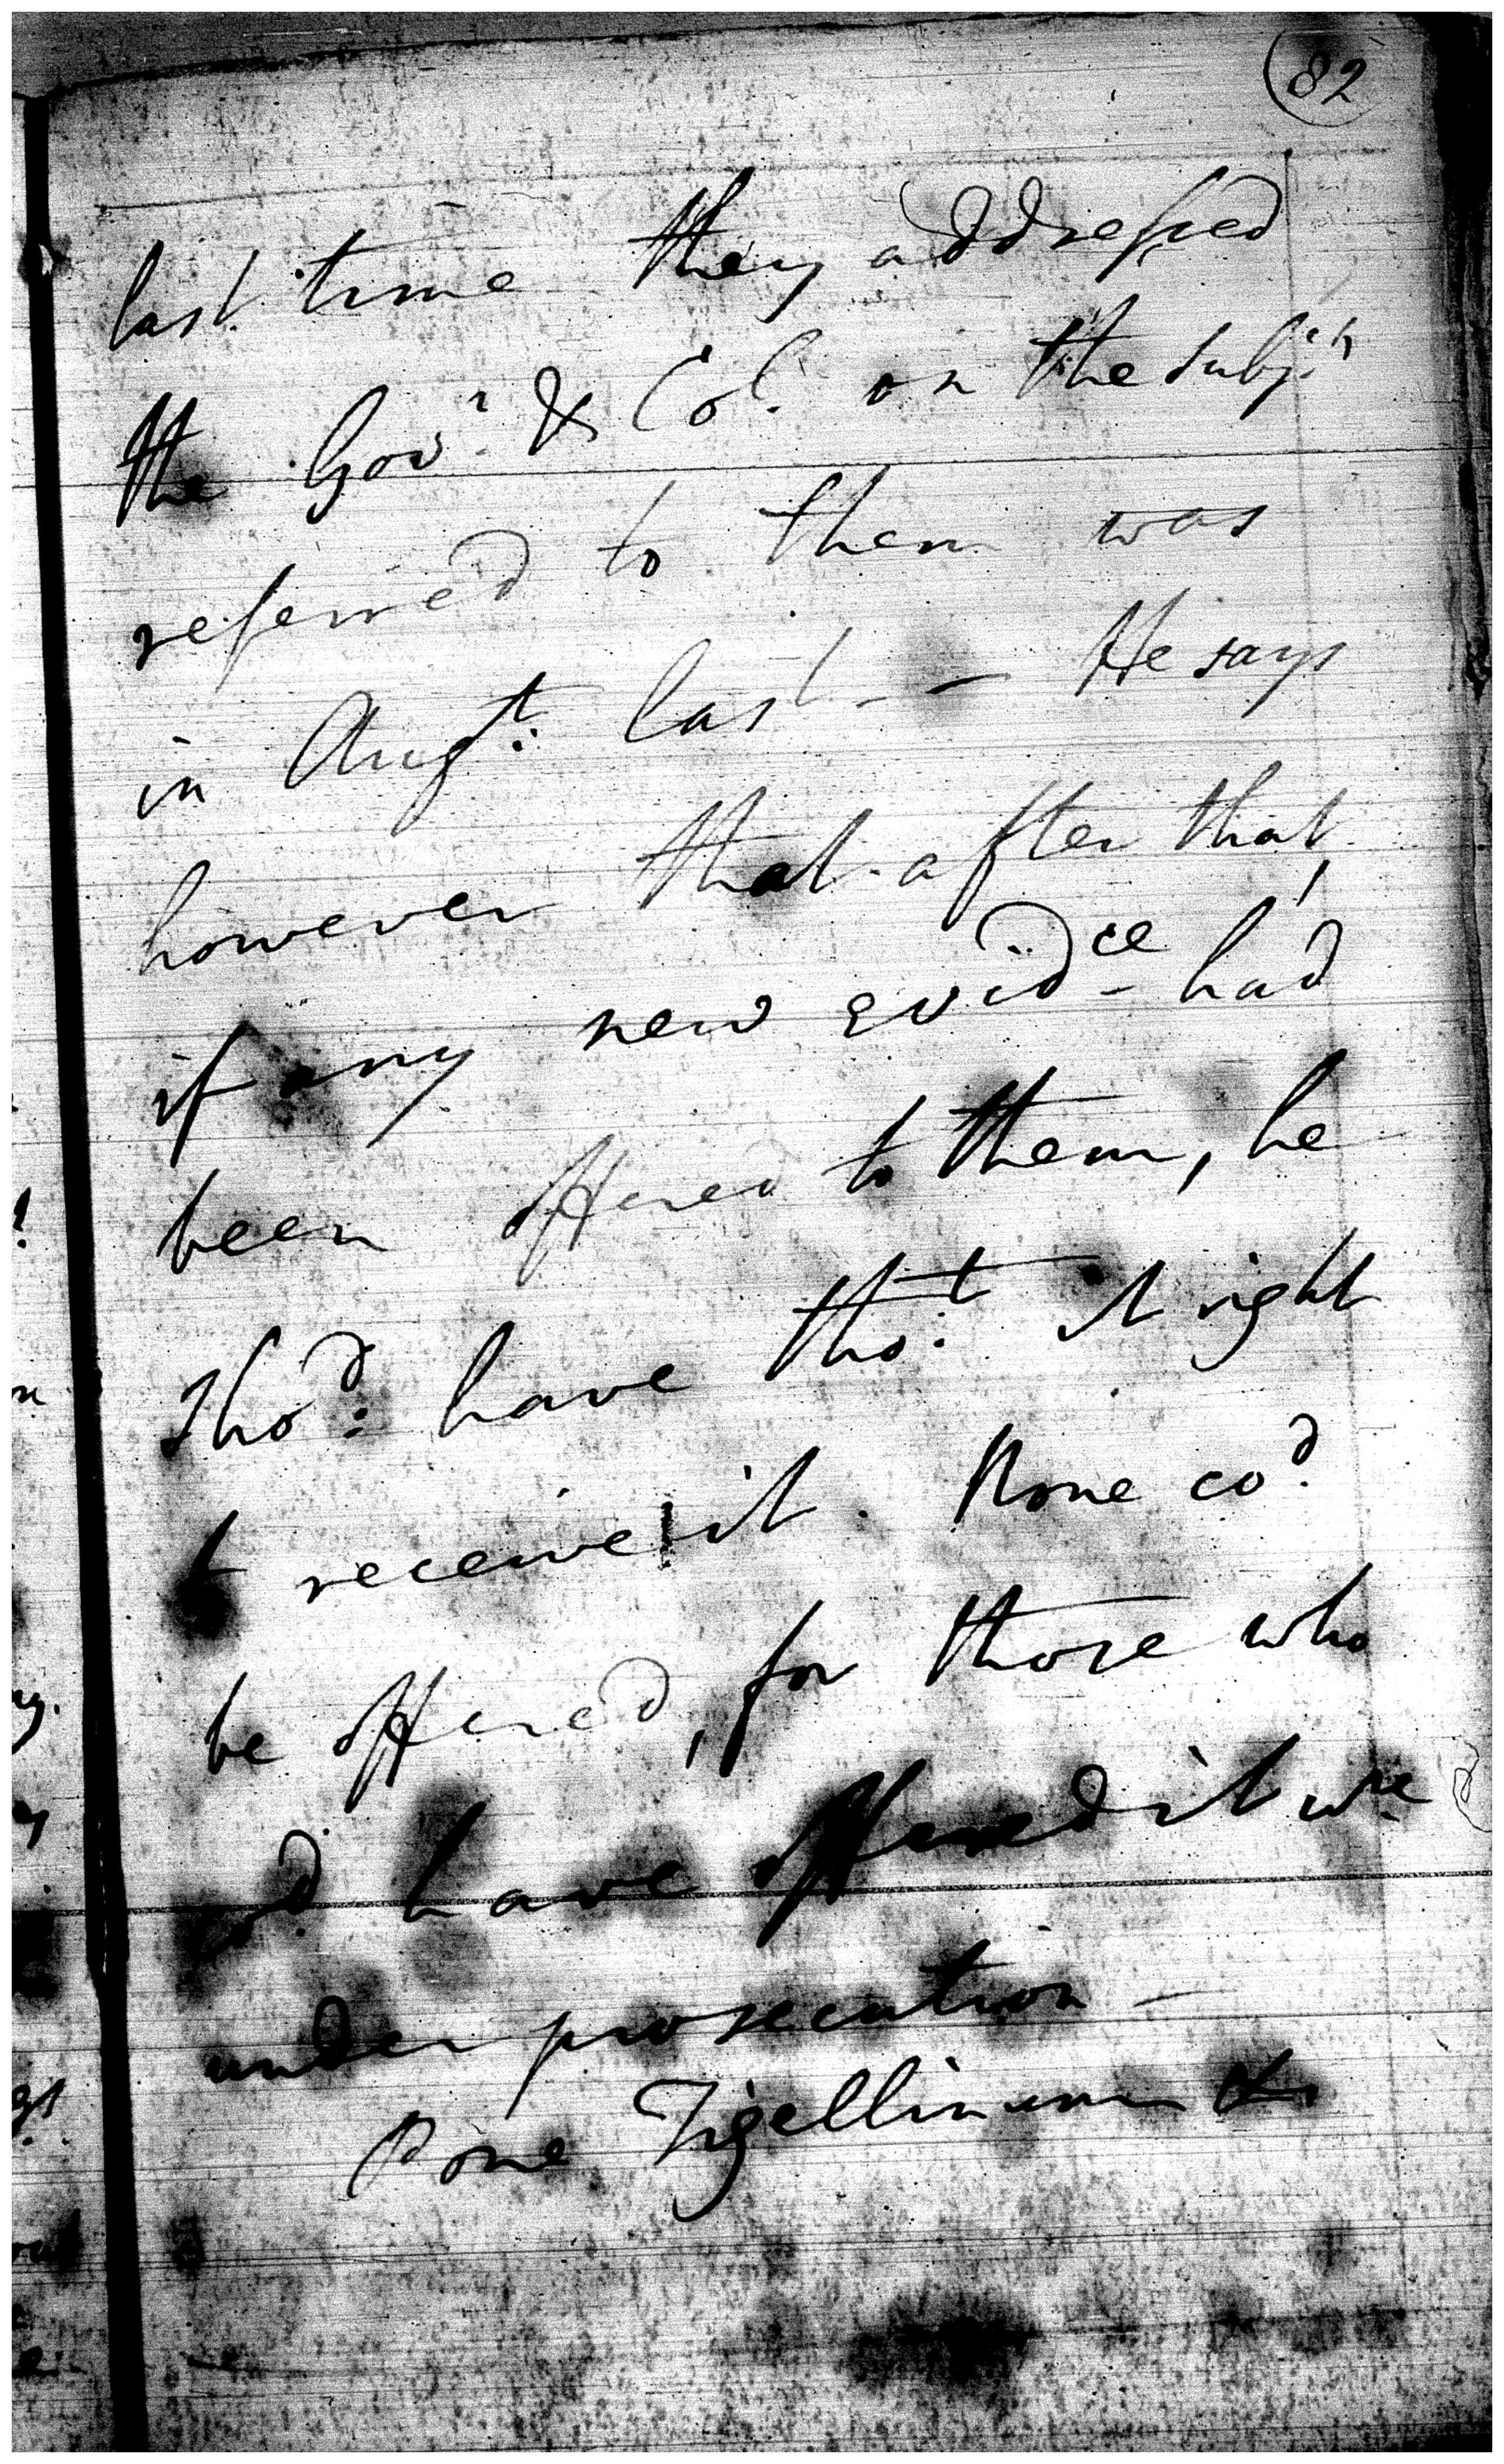 82
last time they addressed
the Govr. & Col. on the Subjt.
referred to them was
in Augt. last — He says
however that after that,
if any new evidce had
been offered to them, he
Shod: have thot. it right
to receive it. None cod.
be offered, for those who
cod. have offered it we
under prosecution —
Pone Tigellinum &